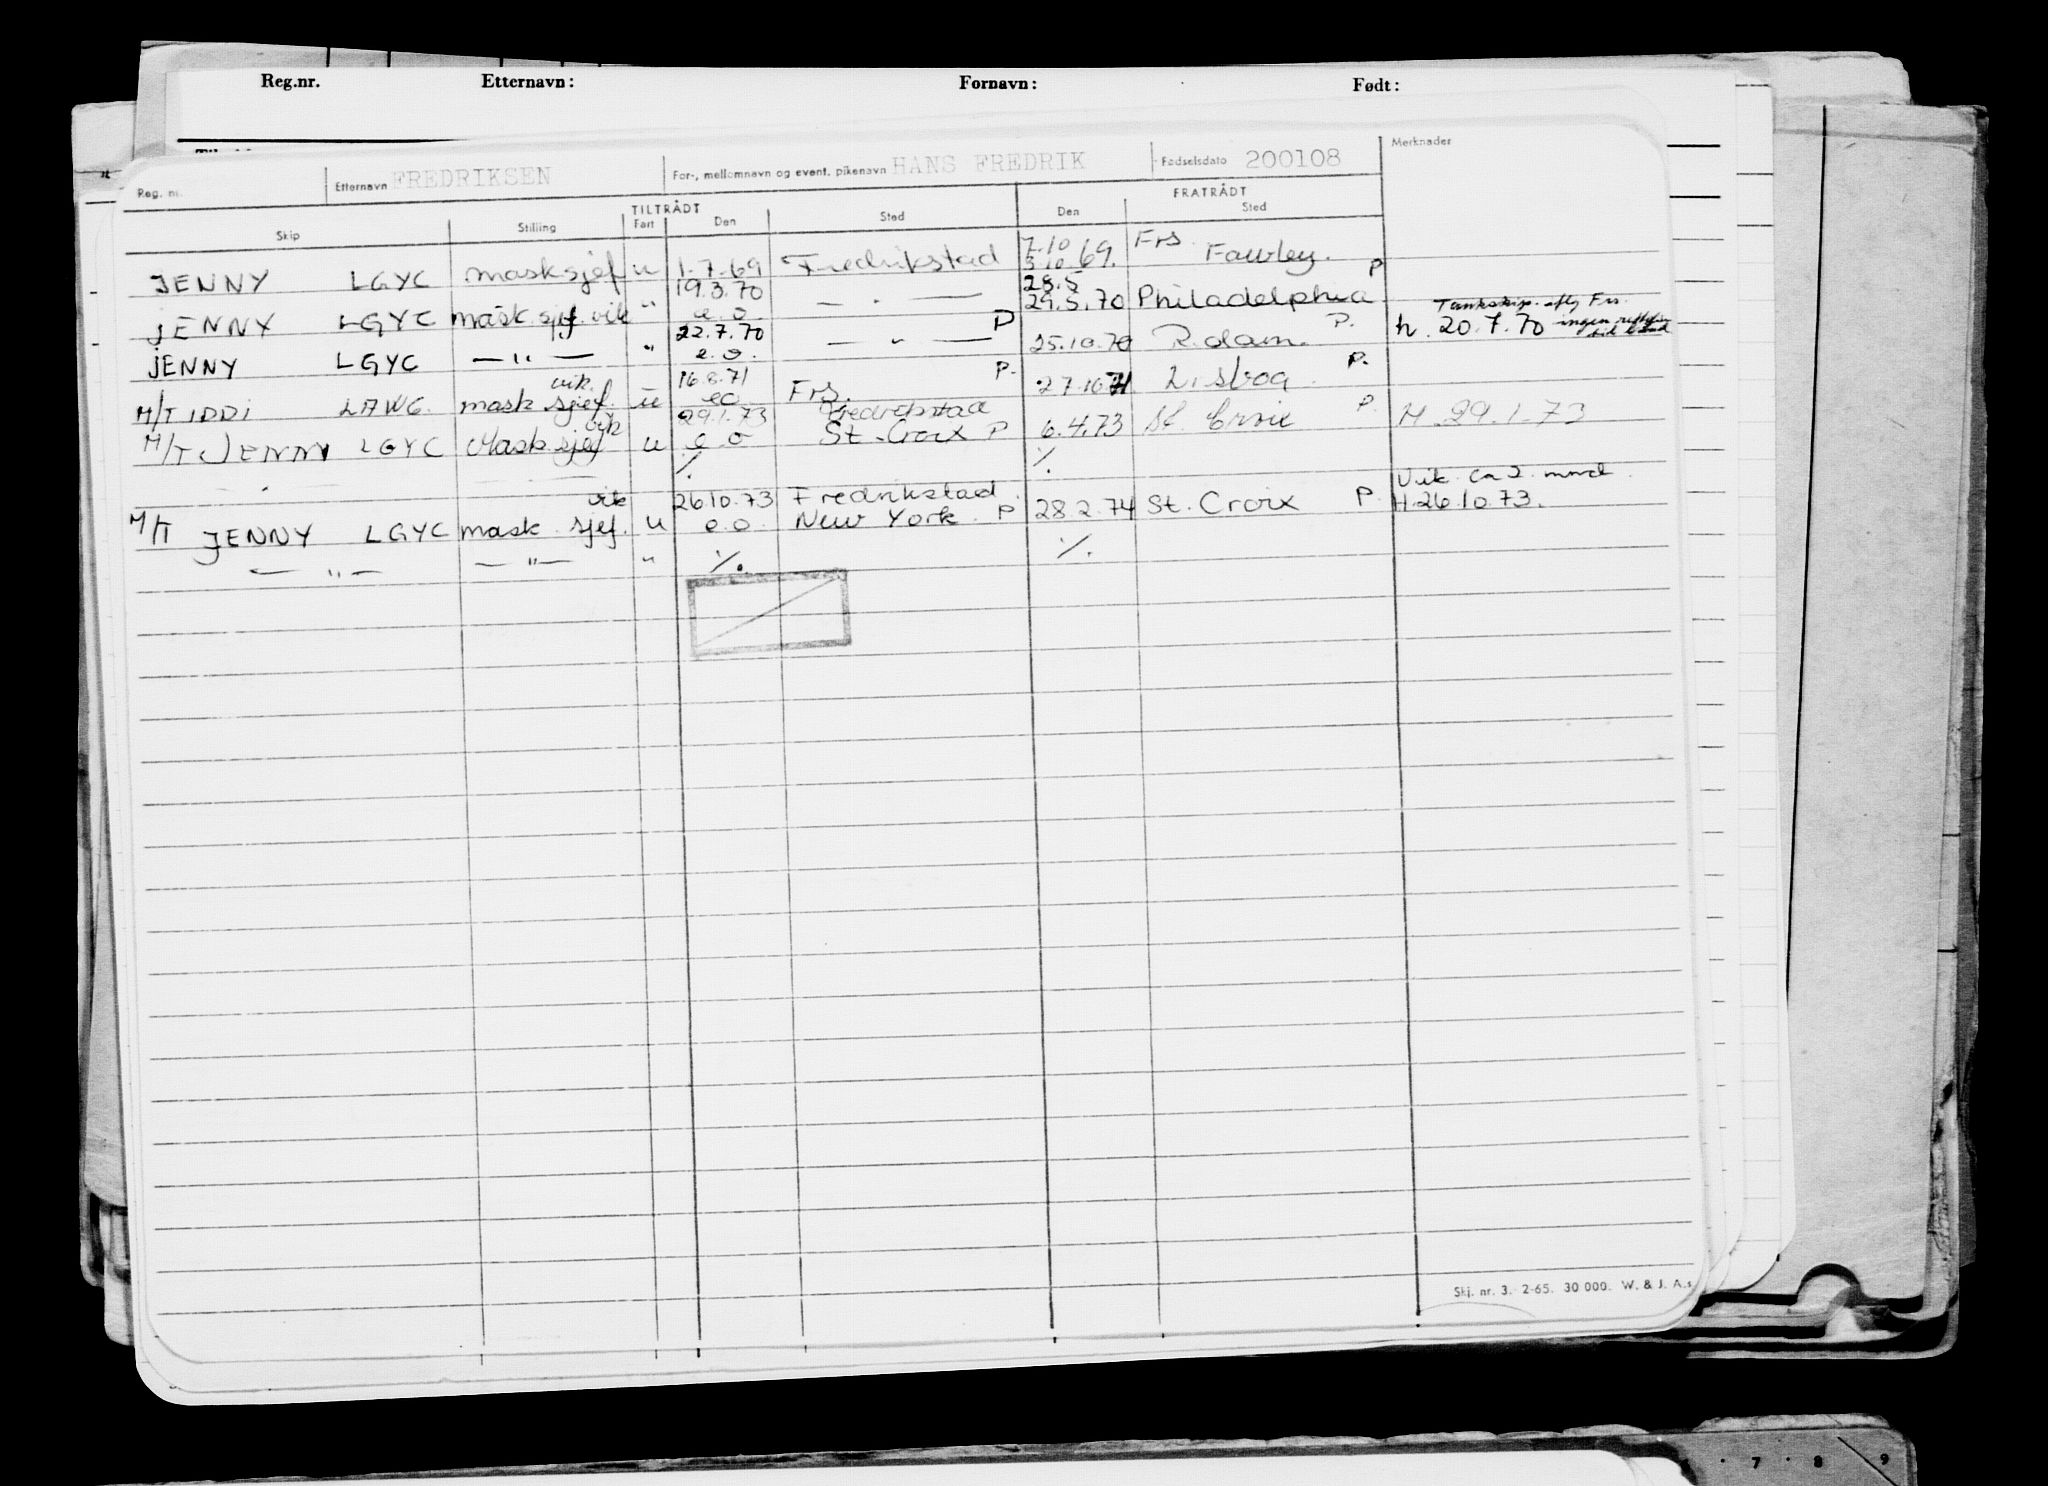 Reg.nr. Etternavn: Fornavn: Født:
Reg. nr. Etternavn FREDRIKSEN For-, mellomnavn og event. pikenavn HANS FREDRIK Fødselsdato 200108 Merknader
TILTRÅDT FRATRÅDT
Skip Stilling Fart Den Sted Den Sted
7.10 Frs.
JENNY LGYC masksjef u 1.7.69 Fredrikstad 5.10.69. Fawley. P
19.3.70 28.5
JENNY LGYC mask.sjef.vik " e.o. — " — P 29.5.70 Philadelphia Tankskip. Frs.
22.7.70 h. 20.7.70 ingen
JENNY LGYC — " — " e.o. — " — P. 25.10.70 R.dam. P.
vik. 16.8.71 Frs.
M/T IDDI LAWG. mask sjef. u eo Fredrikstad 27.10.71 Lisboa P.
vik 29.1.73
M/T JENNY LGYC Mask sjef u e.o St. Croix P 6.4.73 St. Croix P. H. 29.1.73
— " — — ·/. ·/.
vik 26.10.73 Fredrikstad. Vik. ca 2. mnd.
M/T JENNY LGYC mask. sjef. u e.o. New York. P 28.2.74 St. Croix P. H.26.10.73.
— " — — " — " ·/. ·/.
Skj. nr. 3. 2-65. 30 000. W. & J. A.s
7 8 9